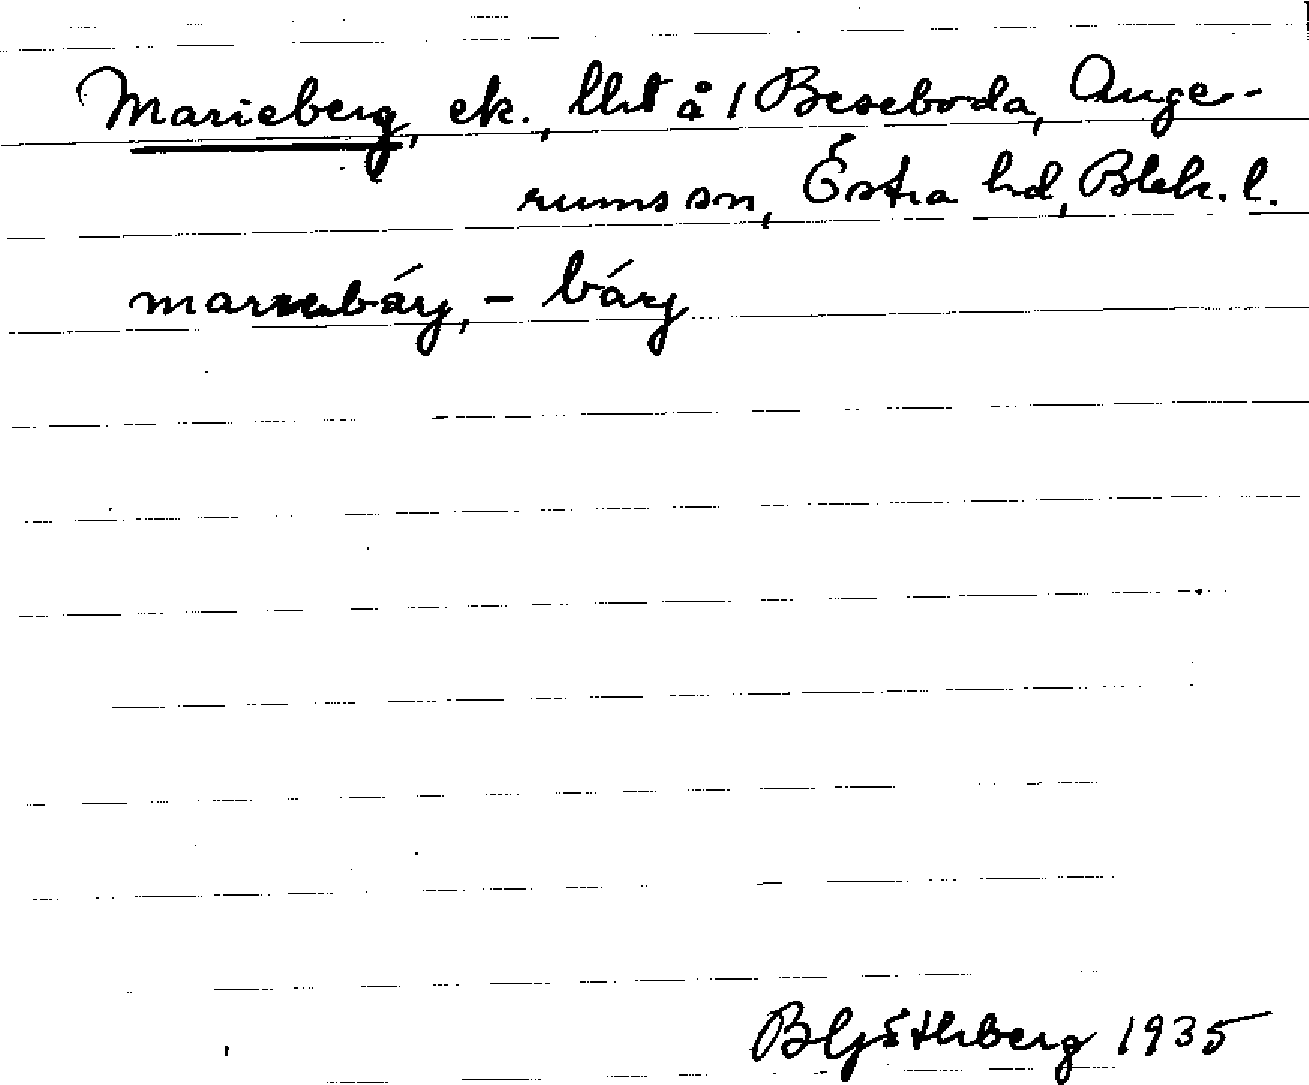 Marieberg, ek., lht å 1 Beseboda, Ange-
rums sn, Östra hd, Blek. l.
marıebárj, - bárj
B Ljüthberg 1935